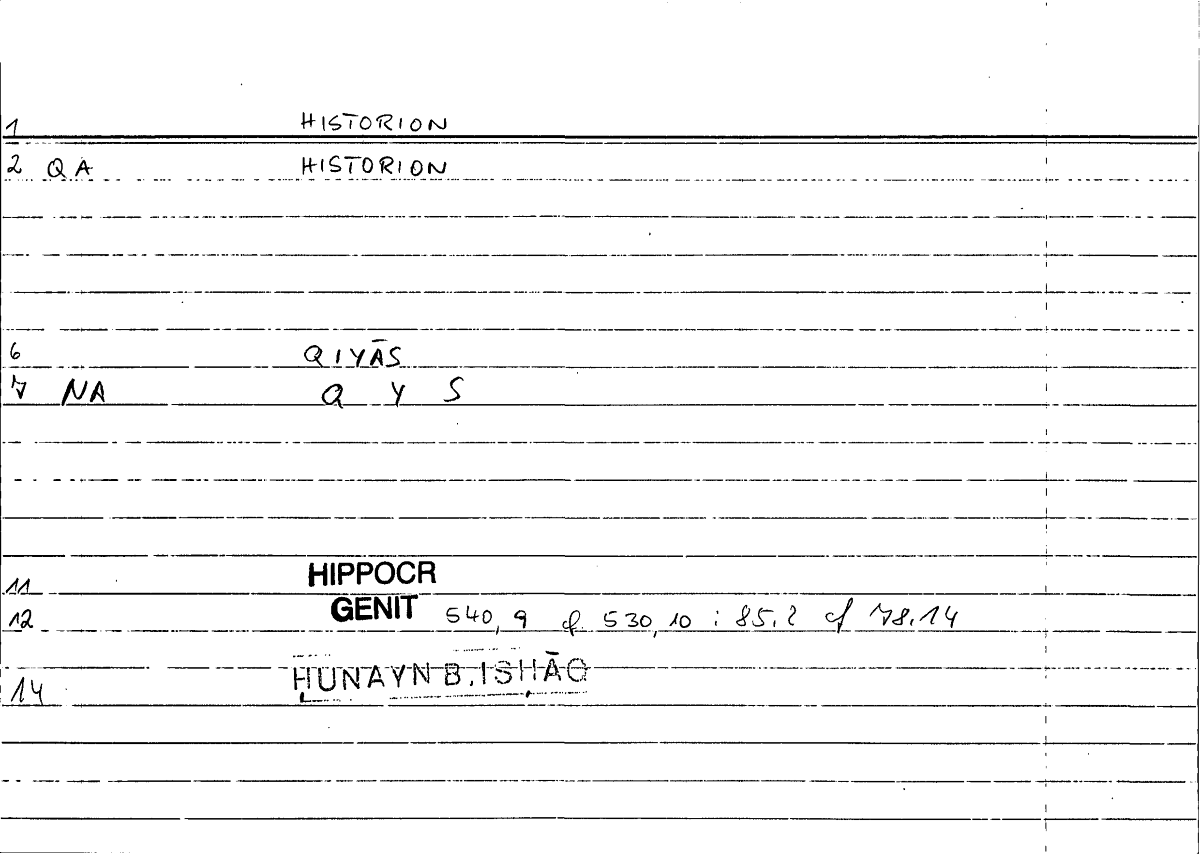 1 HISTORION
2 QA HISTORION
6 QIYĀS
7 NA Q Y S
11 HIPPOCR
12 GENIT 540,9 cf 530,10 : 85.2 cf 78.14
14 ḤUNAYN B. ISḤĀQ